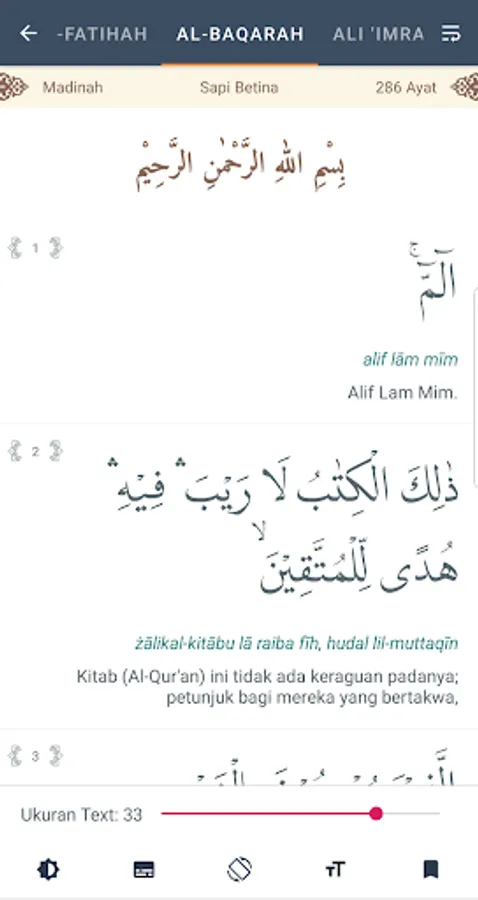 -FATIHAH AL-BAQARAH ALI 'IMRA
Madinah Sapi Betina 286 Ayat
بِسْمِ اللّٰهِ الرَّحْمٰنِ الرَّحِيْمِ
1
الۤمّۤ ۚ
alif lām mīm
Alif Lam Mim.
2
ذٰلِكَ الْكِتٰبُ لَا رَيْبَ ۛ فِيْهِ ۛ
هُدًى لِّلْمُتَّقِيْنَۙ
żālikal-kitābu lā raiba fīh, hudal lil-muttaqīn
Kitab (Al-Qur'an) ini tidak ada keraguan padanya;
petunjuk bagi mereka yang bertakwa,
3
Ukuran Text: 33